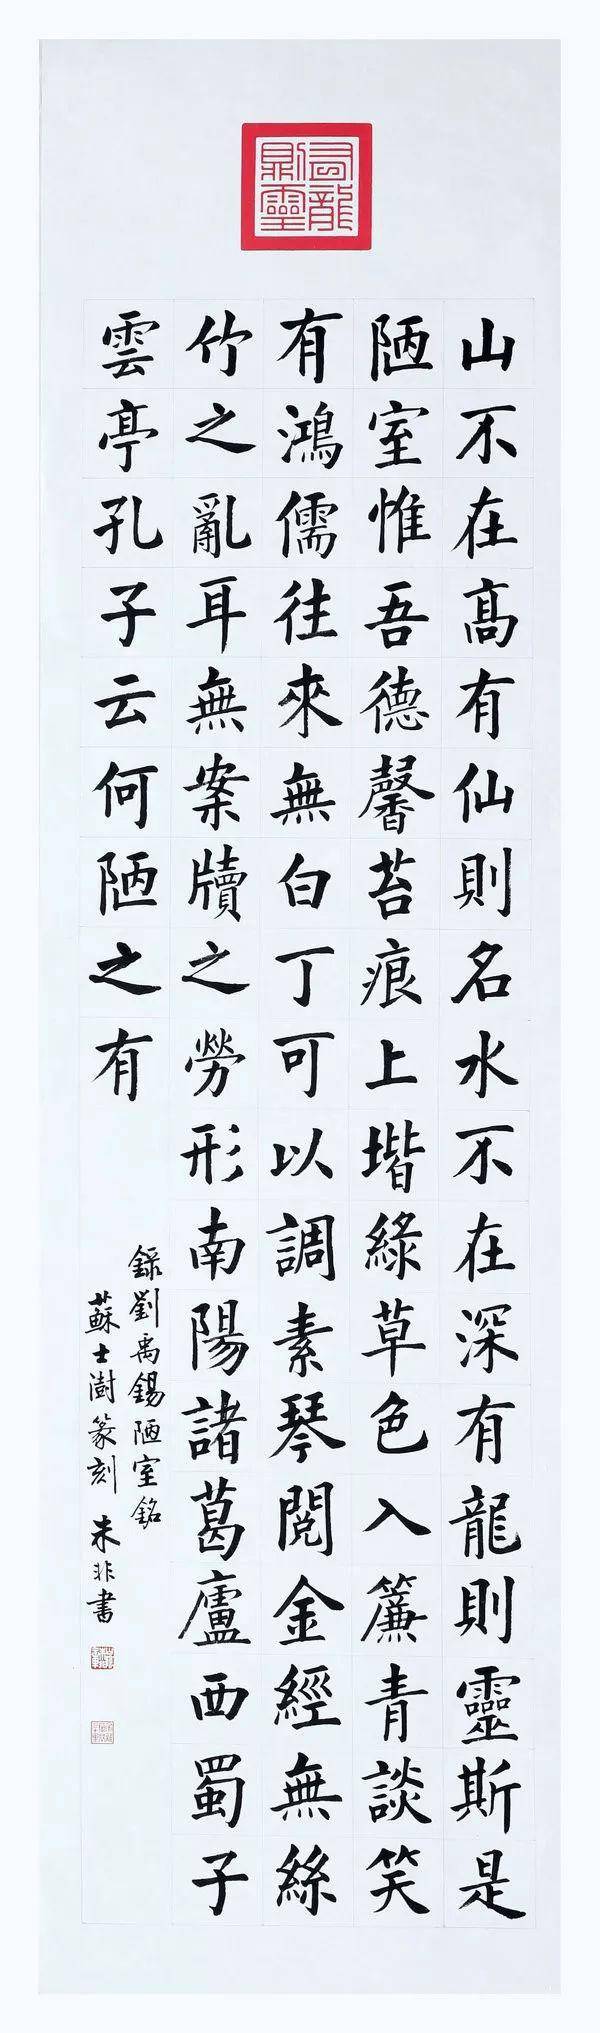 有龍
則靈
山不在髙有仙則名水不在深有龍則靈斯是
陋室惟吾德馨苔痕上堦綠草色入簾青談笑
有鴻儒往來無白丁可以調素琴閱金經無絲
竹之亂耳無案牘之勞形南陽諸葛廬西蜀子
雲亭孔子云何陋之有
錄劉禹錫陋室銘
蘇士澍篆刻 朱非書